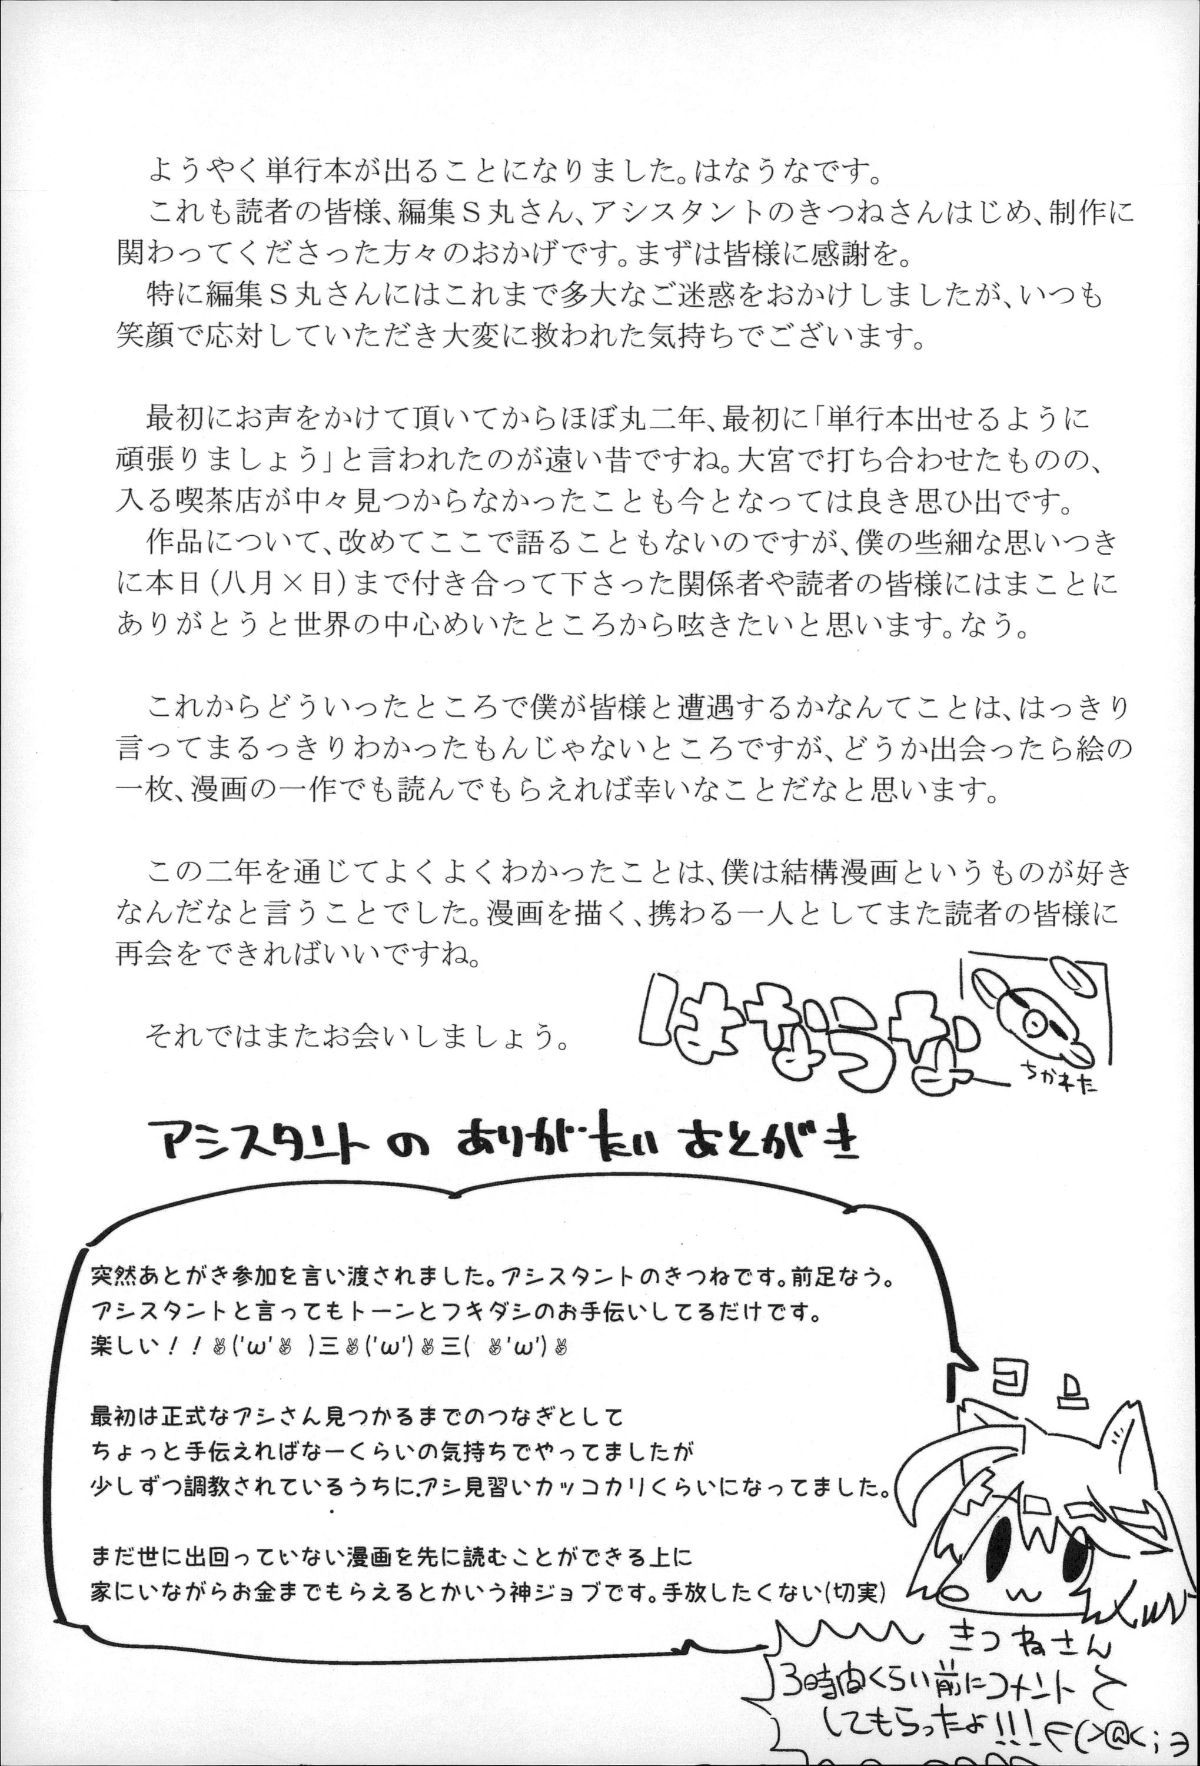 ようやく単行本が出ることになりました。はなうなです。
これも読者の皆様、編集Ｓ丸さん、アシスタントのきつねさんはじめ、制作に
関わってくださった方々のおかげです。まずは皆様に感謝を。
特に編集Ｓ丸さんにはこれまで多大なご迷惑をおかけしましたが、いつも
笑顔で応対していただき大変に救われた気持ちでございます。
最初にお声をかけて頂いてからほぼ丸二年、最初に「単行本出せるように
頑張りましょう」と言われたのが遠い昔ですね。大宮で打ち合わせたものの、
入る喫茶店が中々見つからなかったことも今となっては良き思ひ出です。
作品について、改めてここで語ることもないのですが、僕の些細な思いつき
に本日（八月×日）まで付き合って下さった関係者や読者の皆様にはまことに
ありがとうと世界の中心めいたところから呟きたいと思います。なう。
これからどういったところで僕が皆様と遭遇するかなんてことは、はっきり
言ってまるっきりわかったもんじゃないところですが、どうか出会ったら絵の
一枚、漫画の一作でも読んでもらえれば幸いなことだなと思います。
この二年を通じてよくよくわかったことは、僕は結構漫画というものが好き
なんだなと言うことでした。漫画を描く、携わる一人としてまた読者の皆様に
再会をできればいいですね。
それではまたお会いしましょう。
はなうな
ちかれた
アシスタントのありがたいあとがき
突然あとがき参加を言い渡されました。アシスタントのきつねです。前足なう。
アシスタントと言ってもトーンとフキダシのお手伝いしてるだけです。
楽しい！！✌('ω'✌ )三✌('ω')✌三( ✌'ω')✌
最初は正式なアシさん見つかるまでのつなぎとして
ちょっと手伝えればなーくらいの気持ちでやってましたが
少しずつ調教されているうちに、アシ見習いカッコカリくらいになってました。
まだ世に出回っていない漫画を先に読むことができる上に
家にいながらお金までもらえるとかいう神ジョブです。手放したくない(切実)
コン
きつねさん
3時間くらい前にコメント
してもらったよ!!!